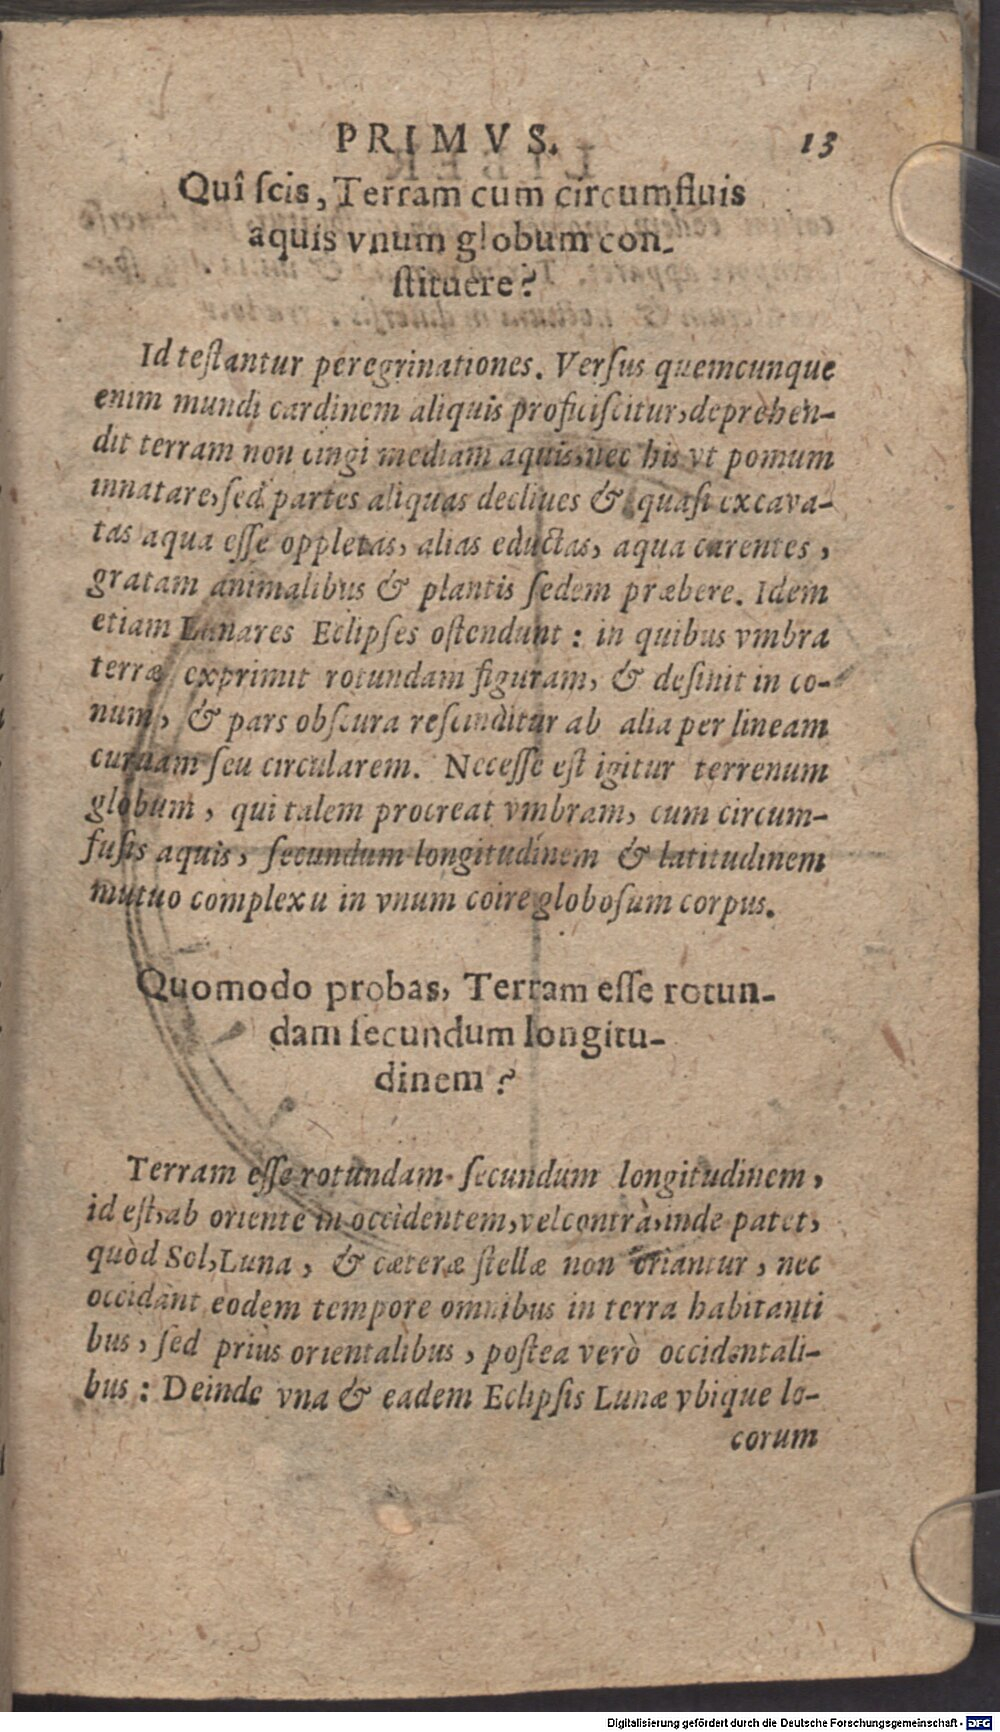 PRIMVS. 13
Quî ſcis, Terram cum circumfluis
aquis vnum globum con-
ſtituere?
Id teſtantur peregrinationes. Verſus quemcunque
enim mundi cardinem aliquis proficiſcitur, deprehen-
dit terram non cingi mediam aquis, nec his vt pomum
innatare, ſed partes aliquas decliues & quaſi excava-
tas aqua eſſe oppletas, alias eductas, aqua carentes,
gratam animalibus & plantis ſedem præbere. Idem
etiam Lunares Eclipſes oſtendunt: in quibus vmbra
terræ exprimit rotundam figuram, & deſinit in co-
num, & pars obſcura reſcinditur ab alia per lineam
curuam ſeu circularem. Neceſſe eſt igitur terrenum
globum, qui talem procreat vmbram, cum circum-
fuſis aquis, ſecundum longitudinem & latitudinem
mutuo complexu in vnum coire globoſum corpus.
Quomodo probas, Terram eſſe rotun-
dam ſecundum longitu-
dinem?
Terram eſſe rotundam ſecundum longitudinem,
id eſt, ab oriente in occidentem, vel contrà, inde patet,
quòd Sol, Luna, & cæteræ ſtellæ non oriantur, nec
occidant eodem tempore omnibus in terra habitanti
bus, ſed priùs orientalibus, poſtea verò occidentali-
bus: Deinde vna & eadem Eclipſis Lunæ vbique lo-
corum
Digitalisierung gefördert durch die Deutsche Forschungsgemeinschaft - DFG